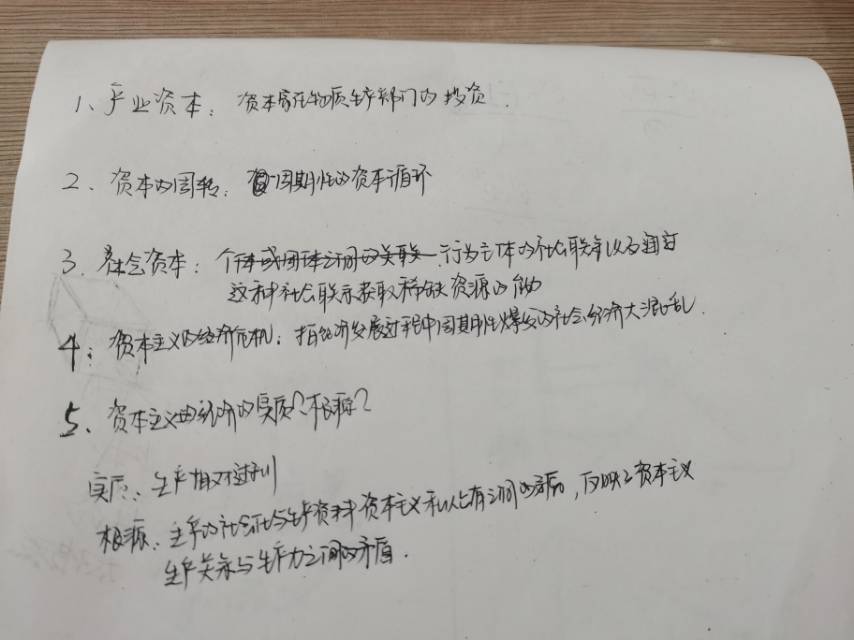 1、产业资本：资本家在物质生产部门的投资.
2、资本的周转：周期性的资本循环
3、社会资本：个体或团体之间的关联 行为主体的社会联系以及通过
这种社会联系获取稀缺资源的能力
4、资本主义的经济危机：指经济发展过程中周期性爆发的社会经济大混乱.
5、资本主义的经济的实质？根源？
实质：生产相对过剩
根源：生产的社会化与生产资料资本主义私人占有之间的矛盾，反映了资本主义
生产关系与生产力之间的矛盾.